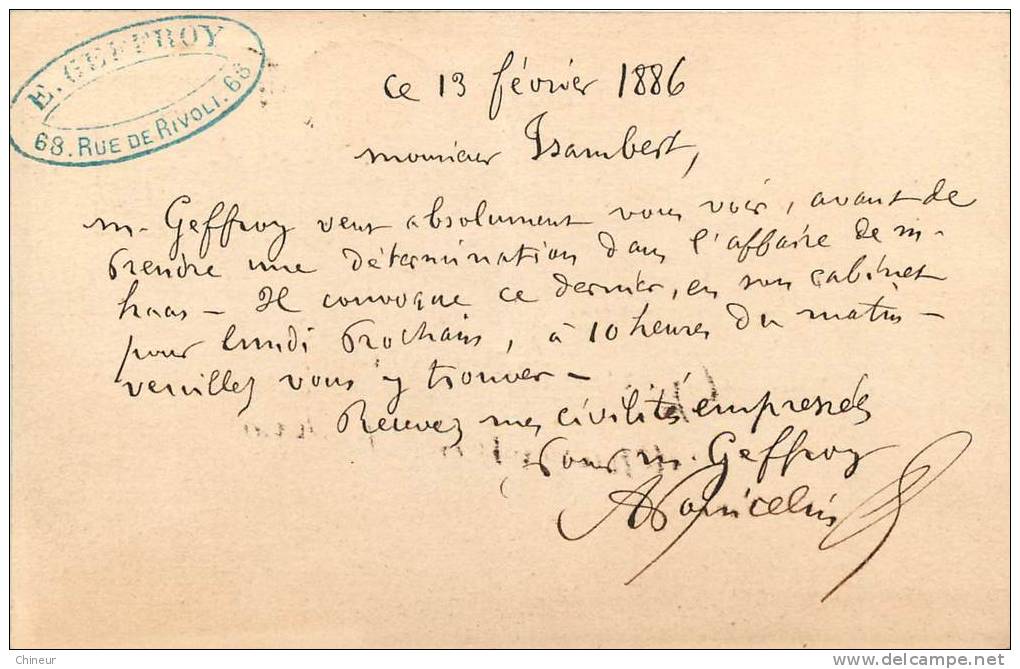 E. GEFFROY
68. RUE DE RIVOLI. 68
ce 13 février 1886
monsieur Isambert,
m. Geffroy veut absolument vous voir, avant de
prendre une détermination dans l'affaire de m.
haas - Il convoque ce dernier, en son cabinet
pour lundi prochain, à 10 heures du matin -
veuillez vous y trouver -
Recevez mes civilités empressées
pour m. Geffroy
Chineur
delcampe.net